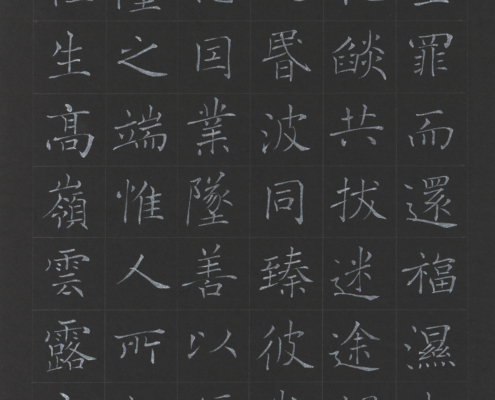 罪而還福濕
燄共拔迷途
昬波同臻彼
因業墜善以
之端惟人所
生髙嶺雲露